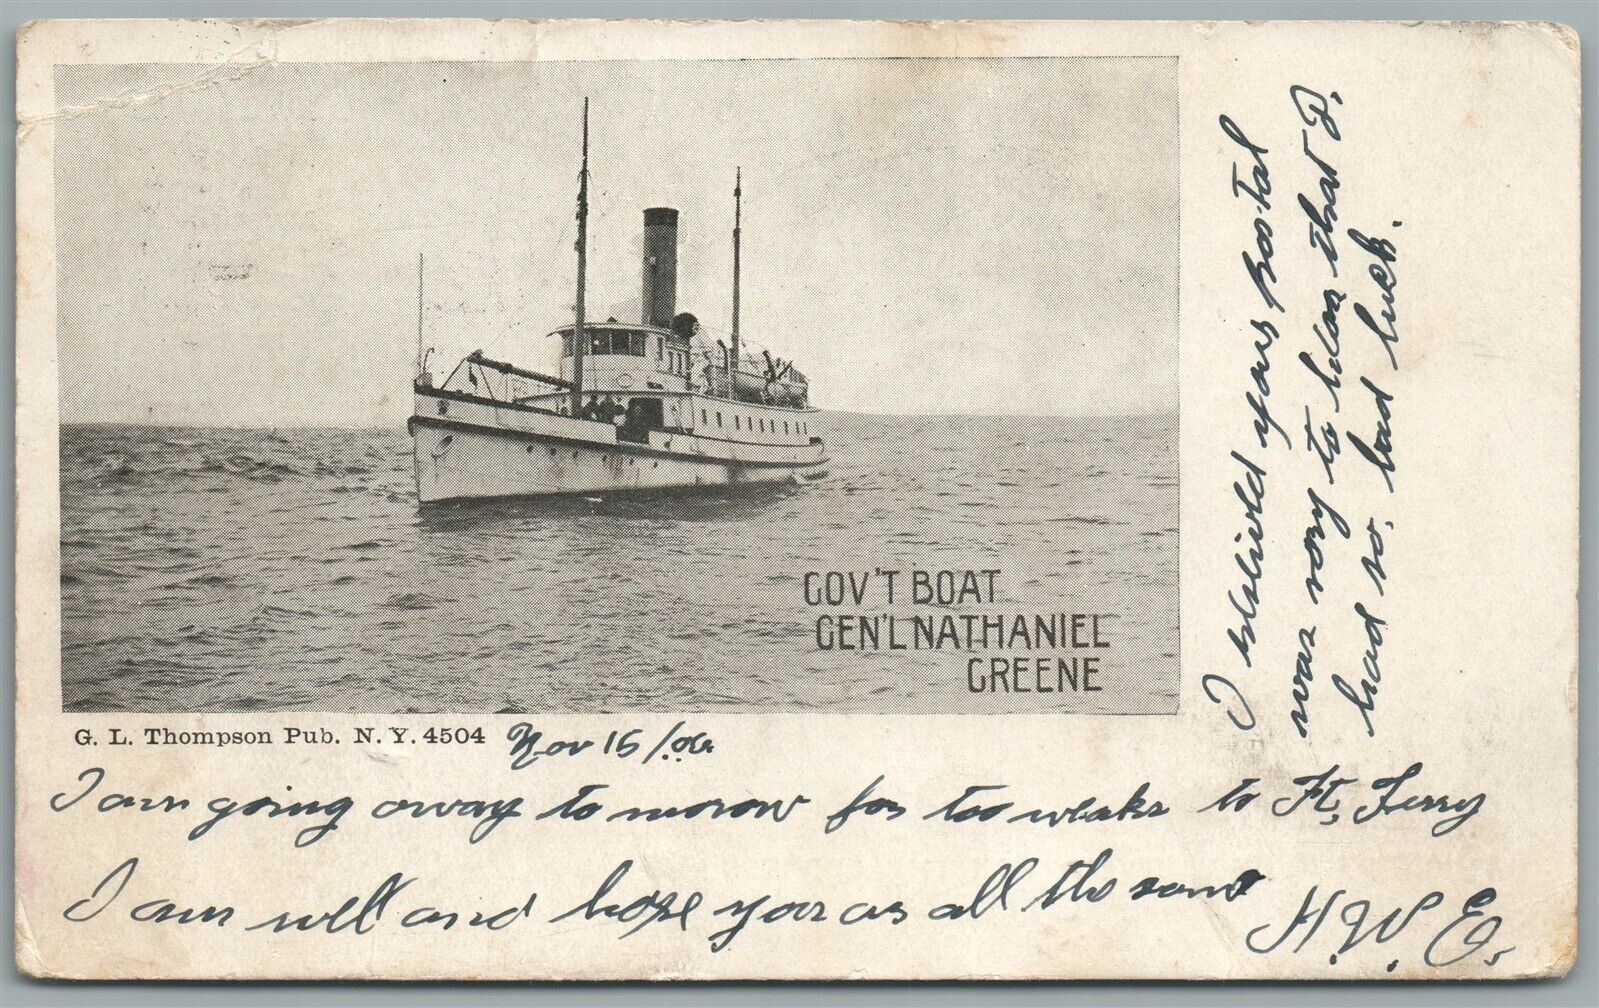 GOV'T BOAT
GEN'L NATHANIEL
GREENE
G. L. Thompson Pub. N. Y. 4504
Nov 15/06
I am going away to morow for too weaks to Ft. Terry
I am well and hope you as all the same
H. W. E.
I resieved your postal
was sory to hear that P.
had so. bad luck.